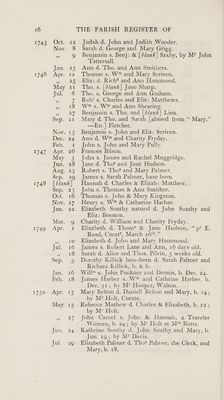 16 THE PARISH REGISTER OF
1745 Oct. 22 Judah d. John and Judith Wooder.
Nov. 8 Sarah d. George and Mary Grigg.
„ 9 Benjamin s. Benj: & [blank] Saxby, by Mr John
Tattersall.
Jan. 25 Ann d. Tho. and Ann Smithers.
1746 Apr. 12 Thomas s. Wm and Mary Scriven.
„ 23 Eliz: d. Richd and Ann Hammond.
May 11 Tho. s. [blank] Jane Sharp.
Jul. 6 Tho. s. George and Ann Graham.
„ 7 Robt s. Charles and Eliz: Matthews.
„ 18 Wm s. Wm and Ann Shearing.
„ 27 Benjamin s. Tho. and [blank] Lieu.
Sep. 21 Mary d. Tho. and Sarah [altered from "Mary."
—Ed.] Fletcher.
Nov. 15 Benjamin s. John and Eliz: Scriven.
Dec. 24 Ann d. Wm and Charity Fryday.
Feb. 1 John s. John and Mary Pully.
1747 Apr. 26 Frances Bilson.
May 3 John s. James and Rachel Muggridge.
Jun. 28 Jane d. Thos and Jane Hudson.
Aug. 23 Robert s. Thos and Mary Palmer.
Sep. 29 James s. Sarah Palmer, base born.
1748 [blank] Hannah d. Charles & Elizab: Mathew.
Sep. 25 John s. Thomas & Ann Smither.
Oct. 16 Thomas s. John & Mary Hammond.
Nov. 27 Henry s. Wm & Catharine Harbar.
Jan. 22 Elizabeth Southy natural d. John Southy and
Eliz: Beeston.
Mar. 9 Charity d. William and Charity Fryday.
1749 Apr. 1 Elizabeth d. Thoms & Jane Hudson, "pr E.
Read, Curat, March 26th."
„ 10 Elizabeth d. John and Mary Hammond.
Jul. 16 James s. Robert Lane and Ann, 16 days old.
„ 18 Sarah d. Alice and Thos. Pibrin, 5 weeks old.
Sep. 3 Dorothy Killick base-born d. Sarah Palmer and
Richard Killick, b. & b.
Jan. 26 Willm s. John Puckner and Dennis, b. Dec. 24.
Feb. 18 James Harber s. Wm and Catherine Harber. b.
Dec. 31; by Mr Hooper, Walton.
1750 Apr. 15 Mary Belton d. Daniell Belton and Mary, b. 14;
by Mr Holt, Curate.
May 13 Rebecca Mathew d. Charles & Elizabeth, b. 12;
by Mr Holt.
„ 27 John Camel s. John & Hannah, a Traveler
Woman, b. 24; by Mr Holt at Mrs Butts.
Jun. 24 Kathrine Southy d. John Southy and Mary, b.
Jun. 19; by Mr Davis.
Jul. 29 Elizabeth Palmer d. Thos Palmer, the Clerk, and
Mary, b. 18.